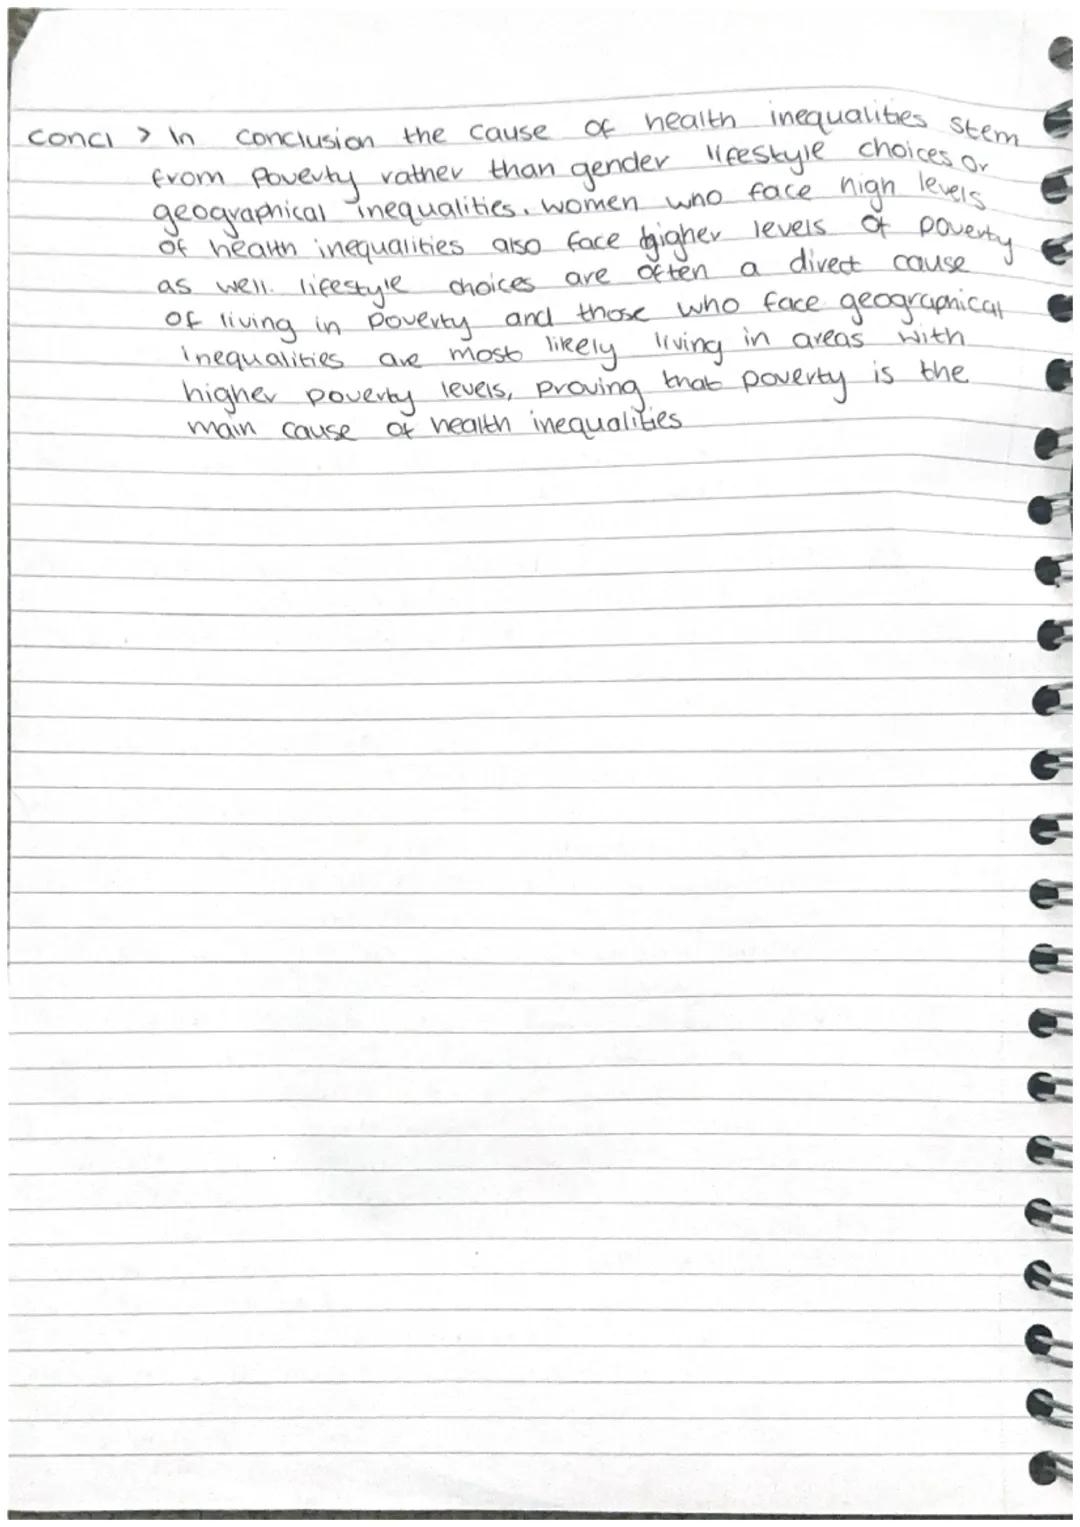 concl > In conclusion the cause of health inequalities stem
from poverty rather than gender lifestyle choices or
geographical inequalities. women who face high levels
of health inequalities also face higher levels of poverty
as well. lifestyle choices are often a direct cause
of living in poverty and those who face geographical
inequalities are most likely living in areas with
higher poverty levels, proving that poverty is the
main cause of health inequalities